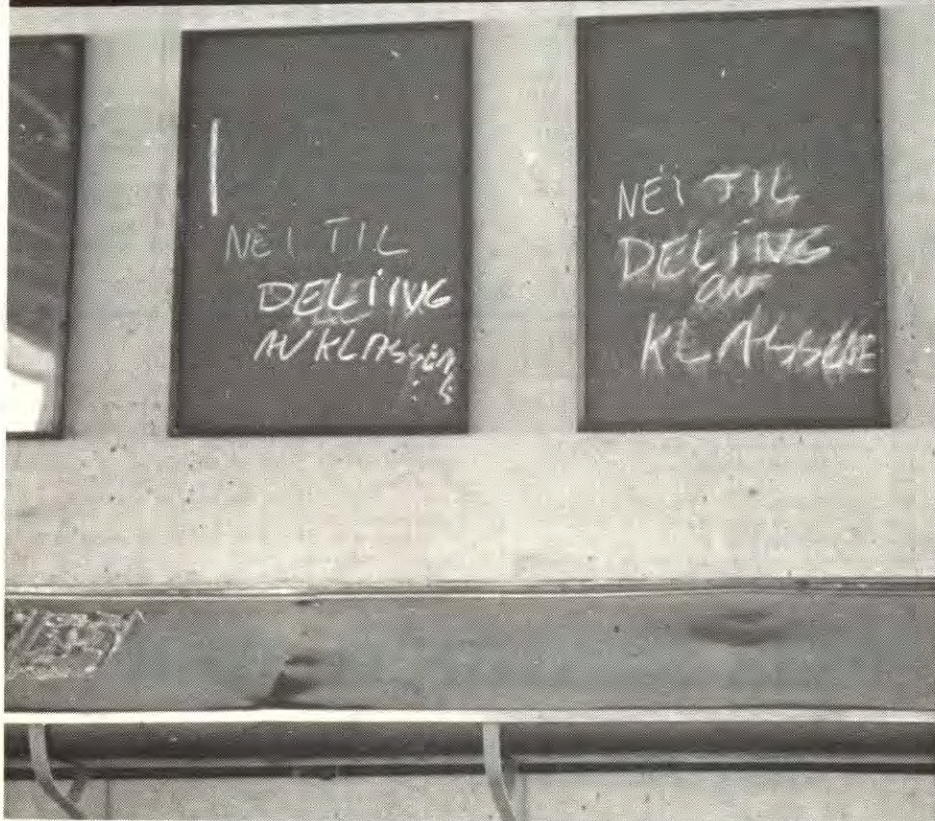 NEI TIL
DELIING
AV KLASSEN
!!
NEI TIL
DELING
av
KLASSENE